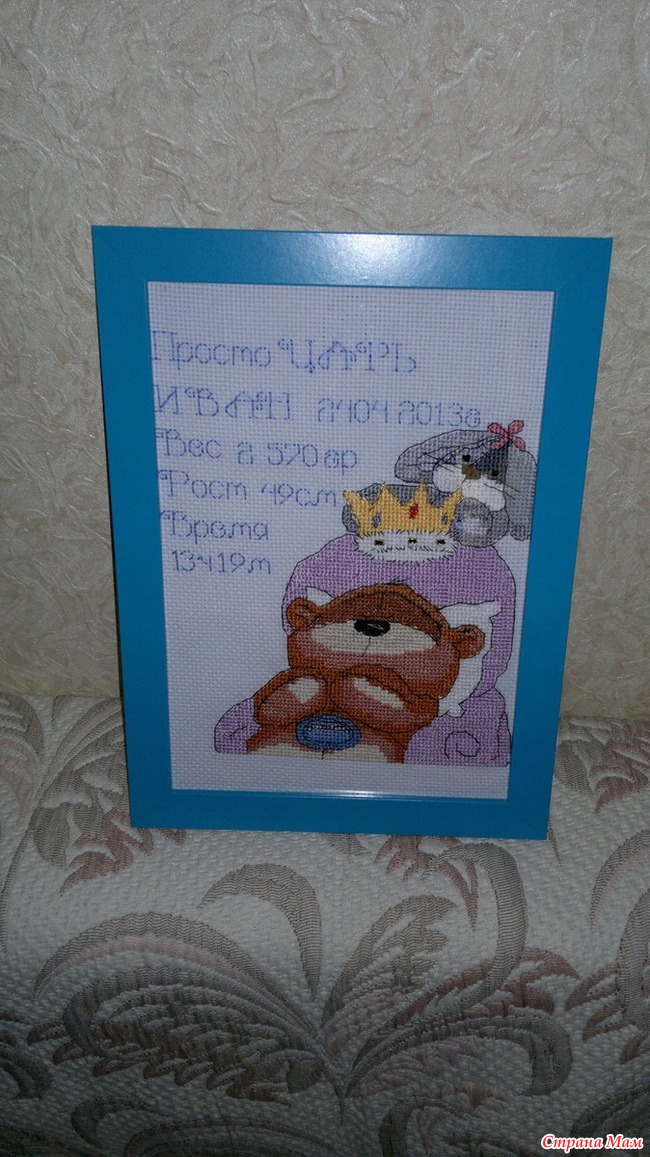 Просто ЦАРЬ
ИВАН 24 04 2013г
Вес 2 570 гр
Рост 49см
Время
13ч19м
Страна Мам